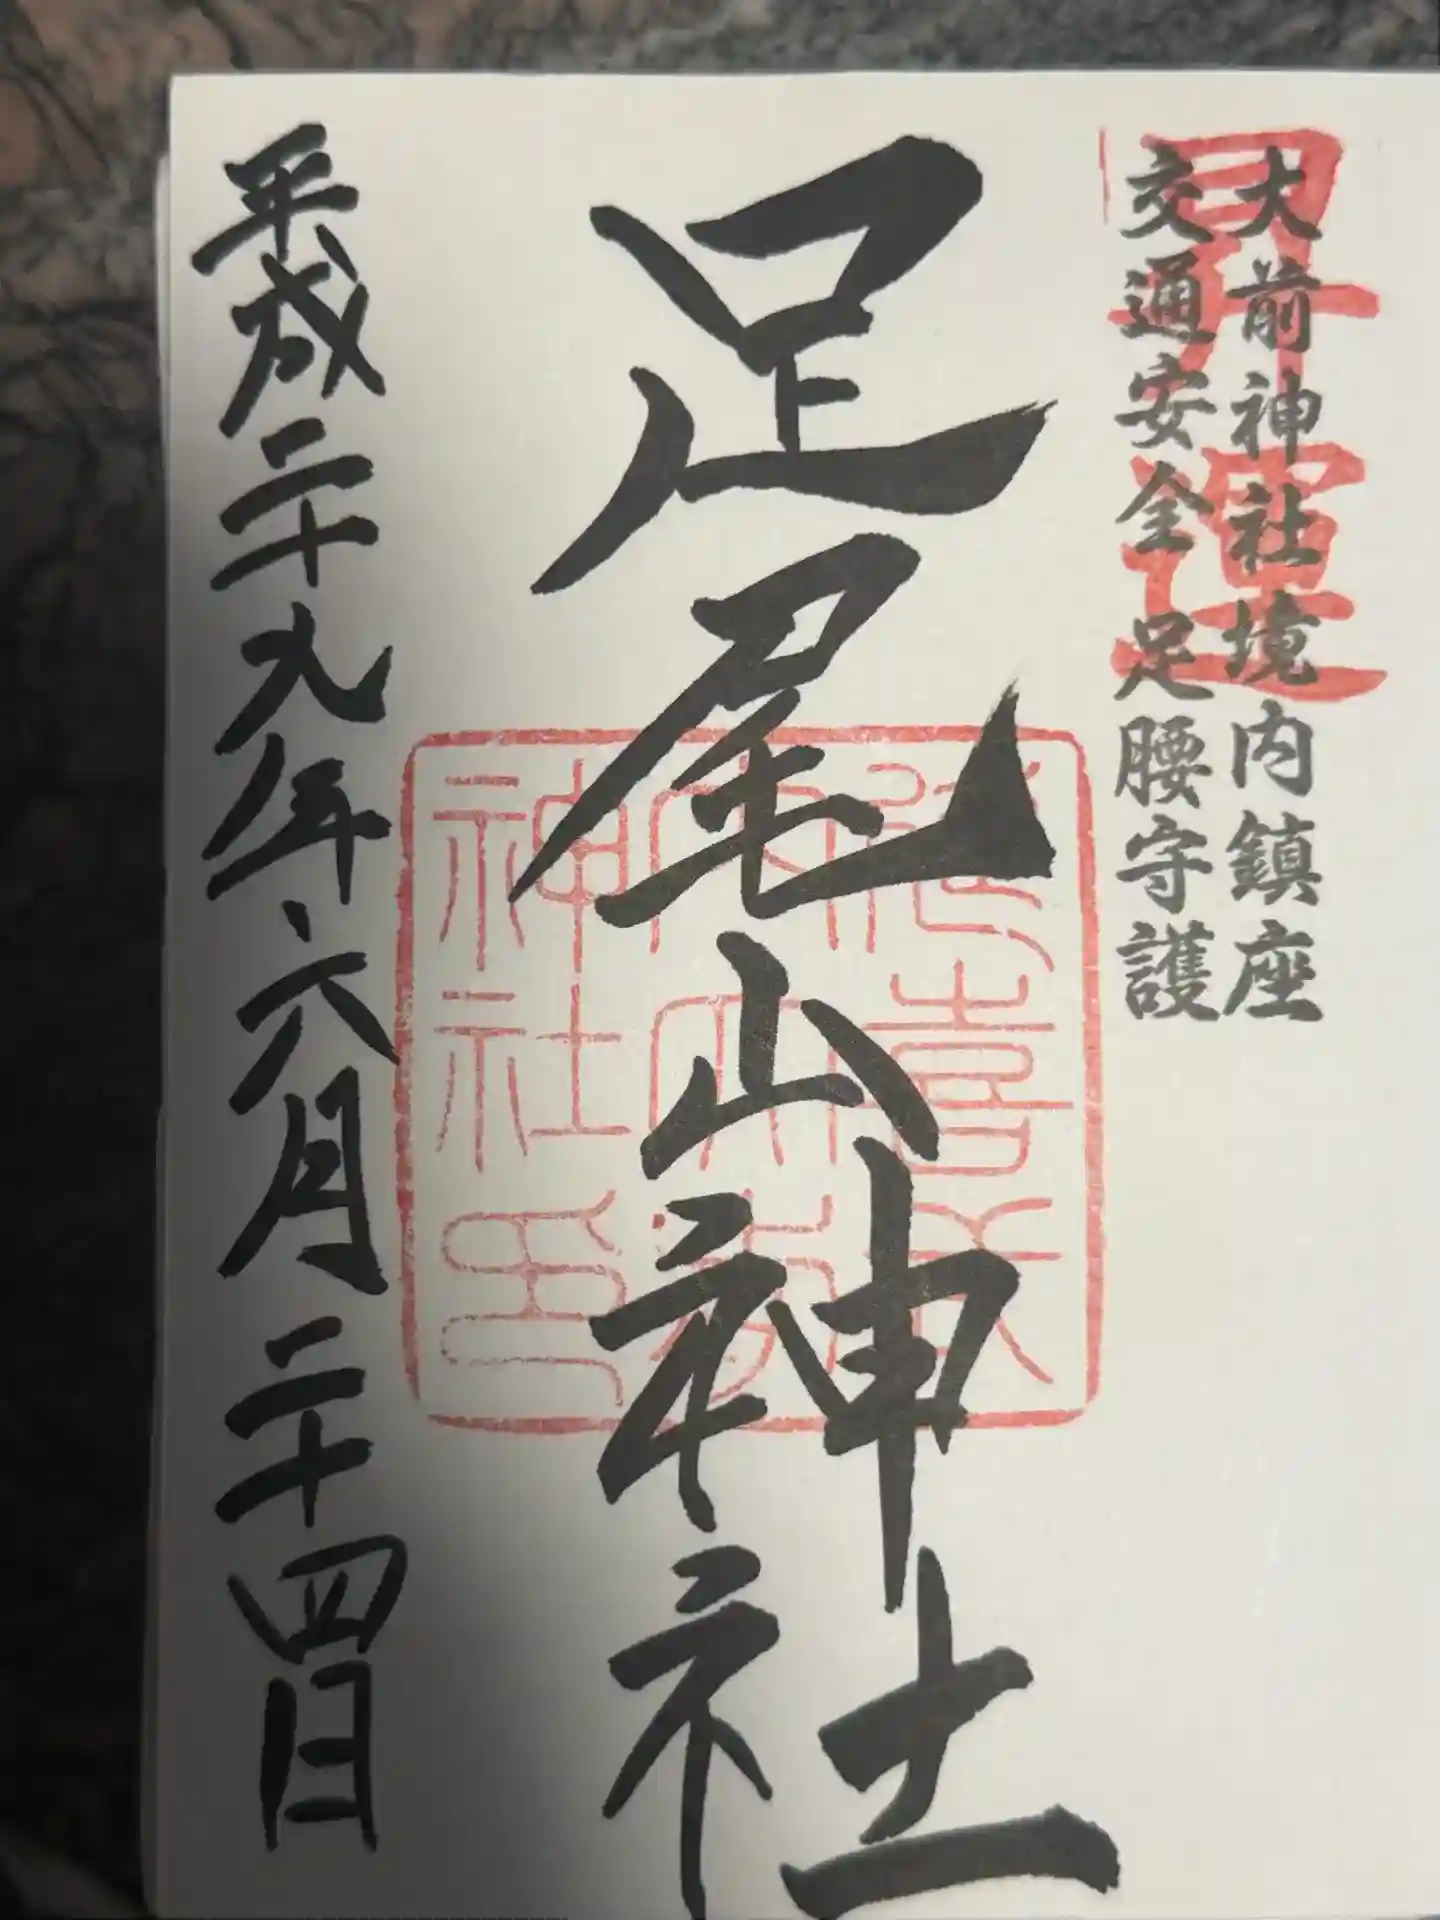 昇運
大前神社境内鎮座
交通安全 足腰守護
足尾山神社
平成二十九年六月二十四日
神社印